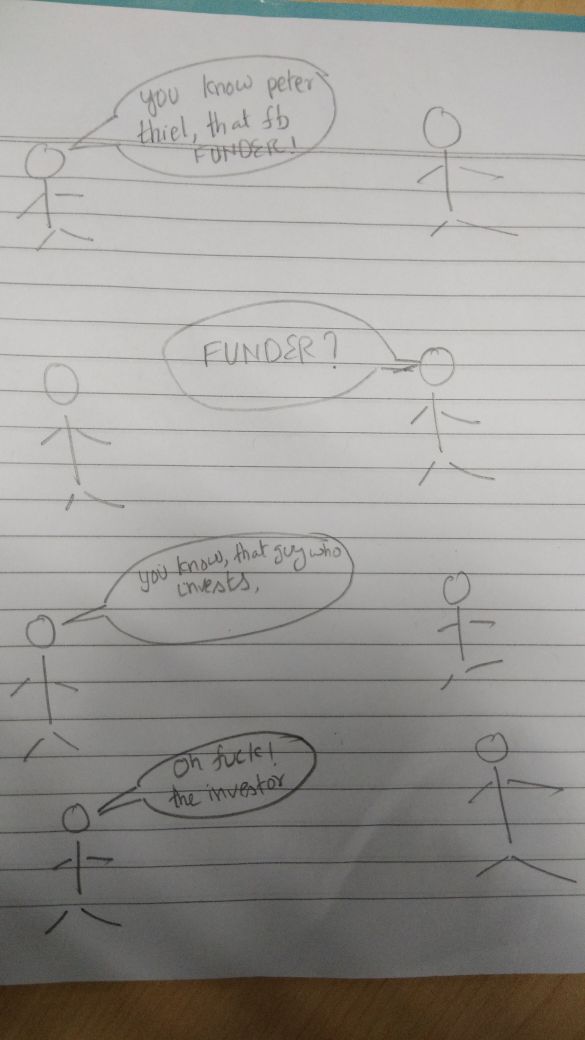 you know peter
thiel, that fb
FUNDER!
FUNDER?
you know, that guy who
invests,
Oh fuck!
the investor